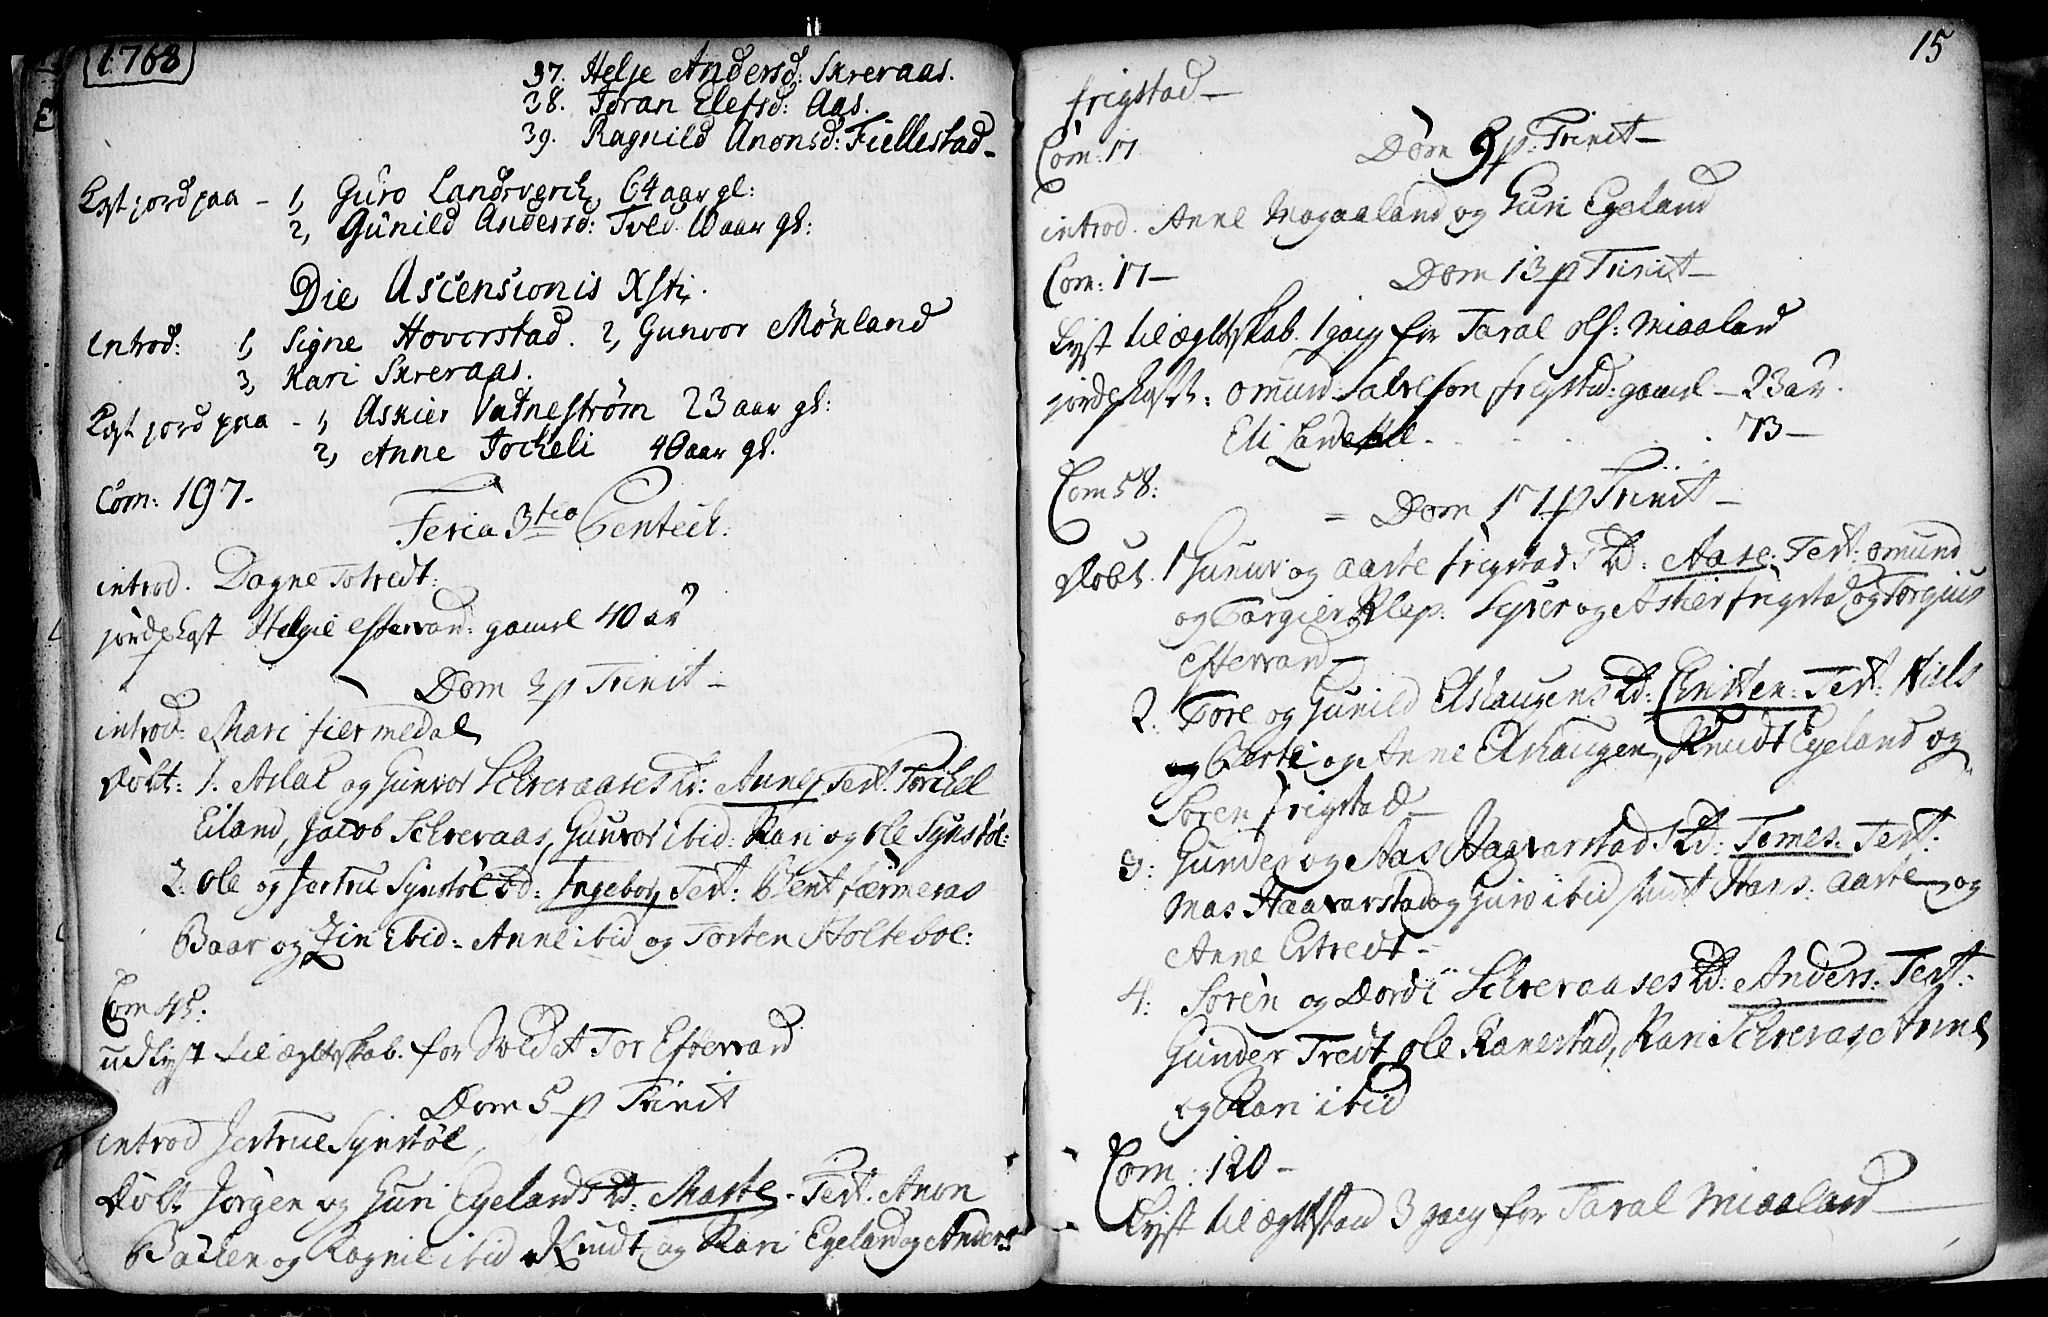 1768
37. Helje Andersd: Skreraas.
38. Joran Elefsd: Aas.
39. Ragnild Anonsd: Fiellestad
Kast jord paa - 1, Guro Landsverch 64 aar gl:
2, Gunild Andersd: Tved. 10 aar gl:
Die Ascensionis Xsti.
Introd: 1, Signe Hoverstad. 2, Gunvor Mönland
3, Kari Skreraas.
Kast jord paa - 1, Askier Vatneström 23 aar gl:
2, Anne Jockeli 40 aar gl.
Com: 197.
Feria 3tia Pentec:
introd. Dagne Totredt:
jordekast Helgie Eftevand: gamel 40 aar
Dom 3 p Trinit -
introd: Mari fiermedal
Döbt: 1. Aslac og Gunvor Schreraases Bd: Anne, Test. Torchel
Eiland, Jacob Schreraas, Gunvor ibid: Kari og Ole Synstöl:
2: Ole og Jertru Synstöl Bd: Ingebor, Test: Bent færneras
Baar og Zin Ebid - Anne ibid og Torten Holtebol:
Com 45:
udlyst til ægteskab. for Soldat Tor Eftevand
Dom 5 p Trinit
introd Jertrue Synstöl
Döbt Jörgen og Guri Egelands Bd: Marte - Test. Anon
Bachen og Ragnil ibid Knudt og Kari Egeland og Anders
15
frigstad -
Com: 17
Dom 9 p: Trinit -
introd. Anne Magaaland og Guri Egeland
Com: 17 -
Dom 13 p Trinit -
Lyst til ægteskab 1 gang for Taral Ols: Miaaland
jordekast: Omund Salveson frigstad: gamel - 23 aar.
Eli . . . . 73 -
Com 58:
= Dom 17 p Trinit -
Döbt. 1 Gunur og Aaste frigstads Bd: Aase: Test: Omund
og Targier Klep: Syver og Askier frigstad og Torgius
Eftevand -
2. Tore og Gunild Elshaugens Bd: Christen: Test: Niels
og Berte og Anne Elshaugen, Knudt Egeland og
Sören frigstad -
3: Gunder og Aas Haavarstads Bd: Tomes. Test:
Mas Haavarstad og Guro ibid Knut Hans: Aaste og
Anne Ertredt -
4: Sören og Dordi Schreraases Bd: Anders: Test:
Gunder Tredt, Ole Ranestad, Kari Schreras, Anne
og Kari ibid
Com: 120 -
Lyst til ægtestand 3 gang for Taral Miaaland